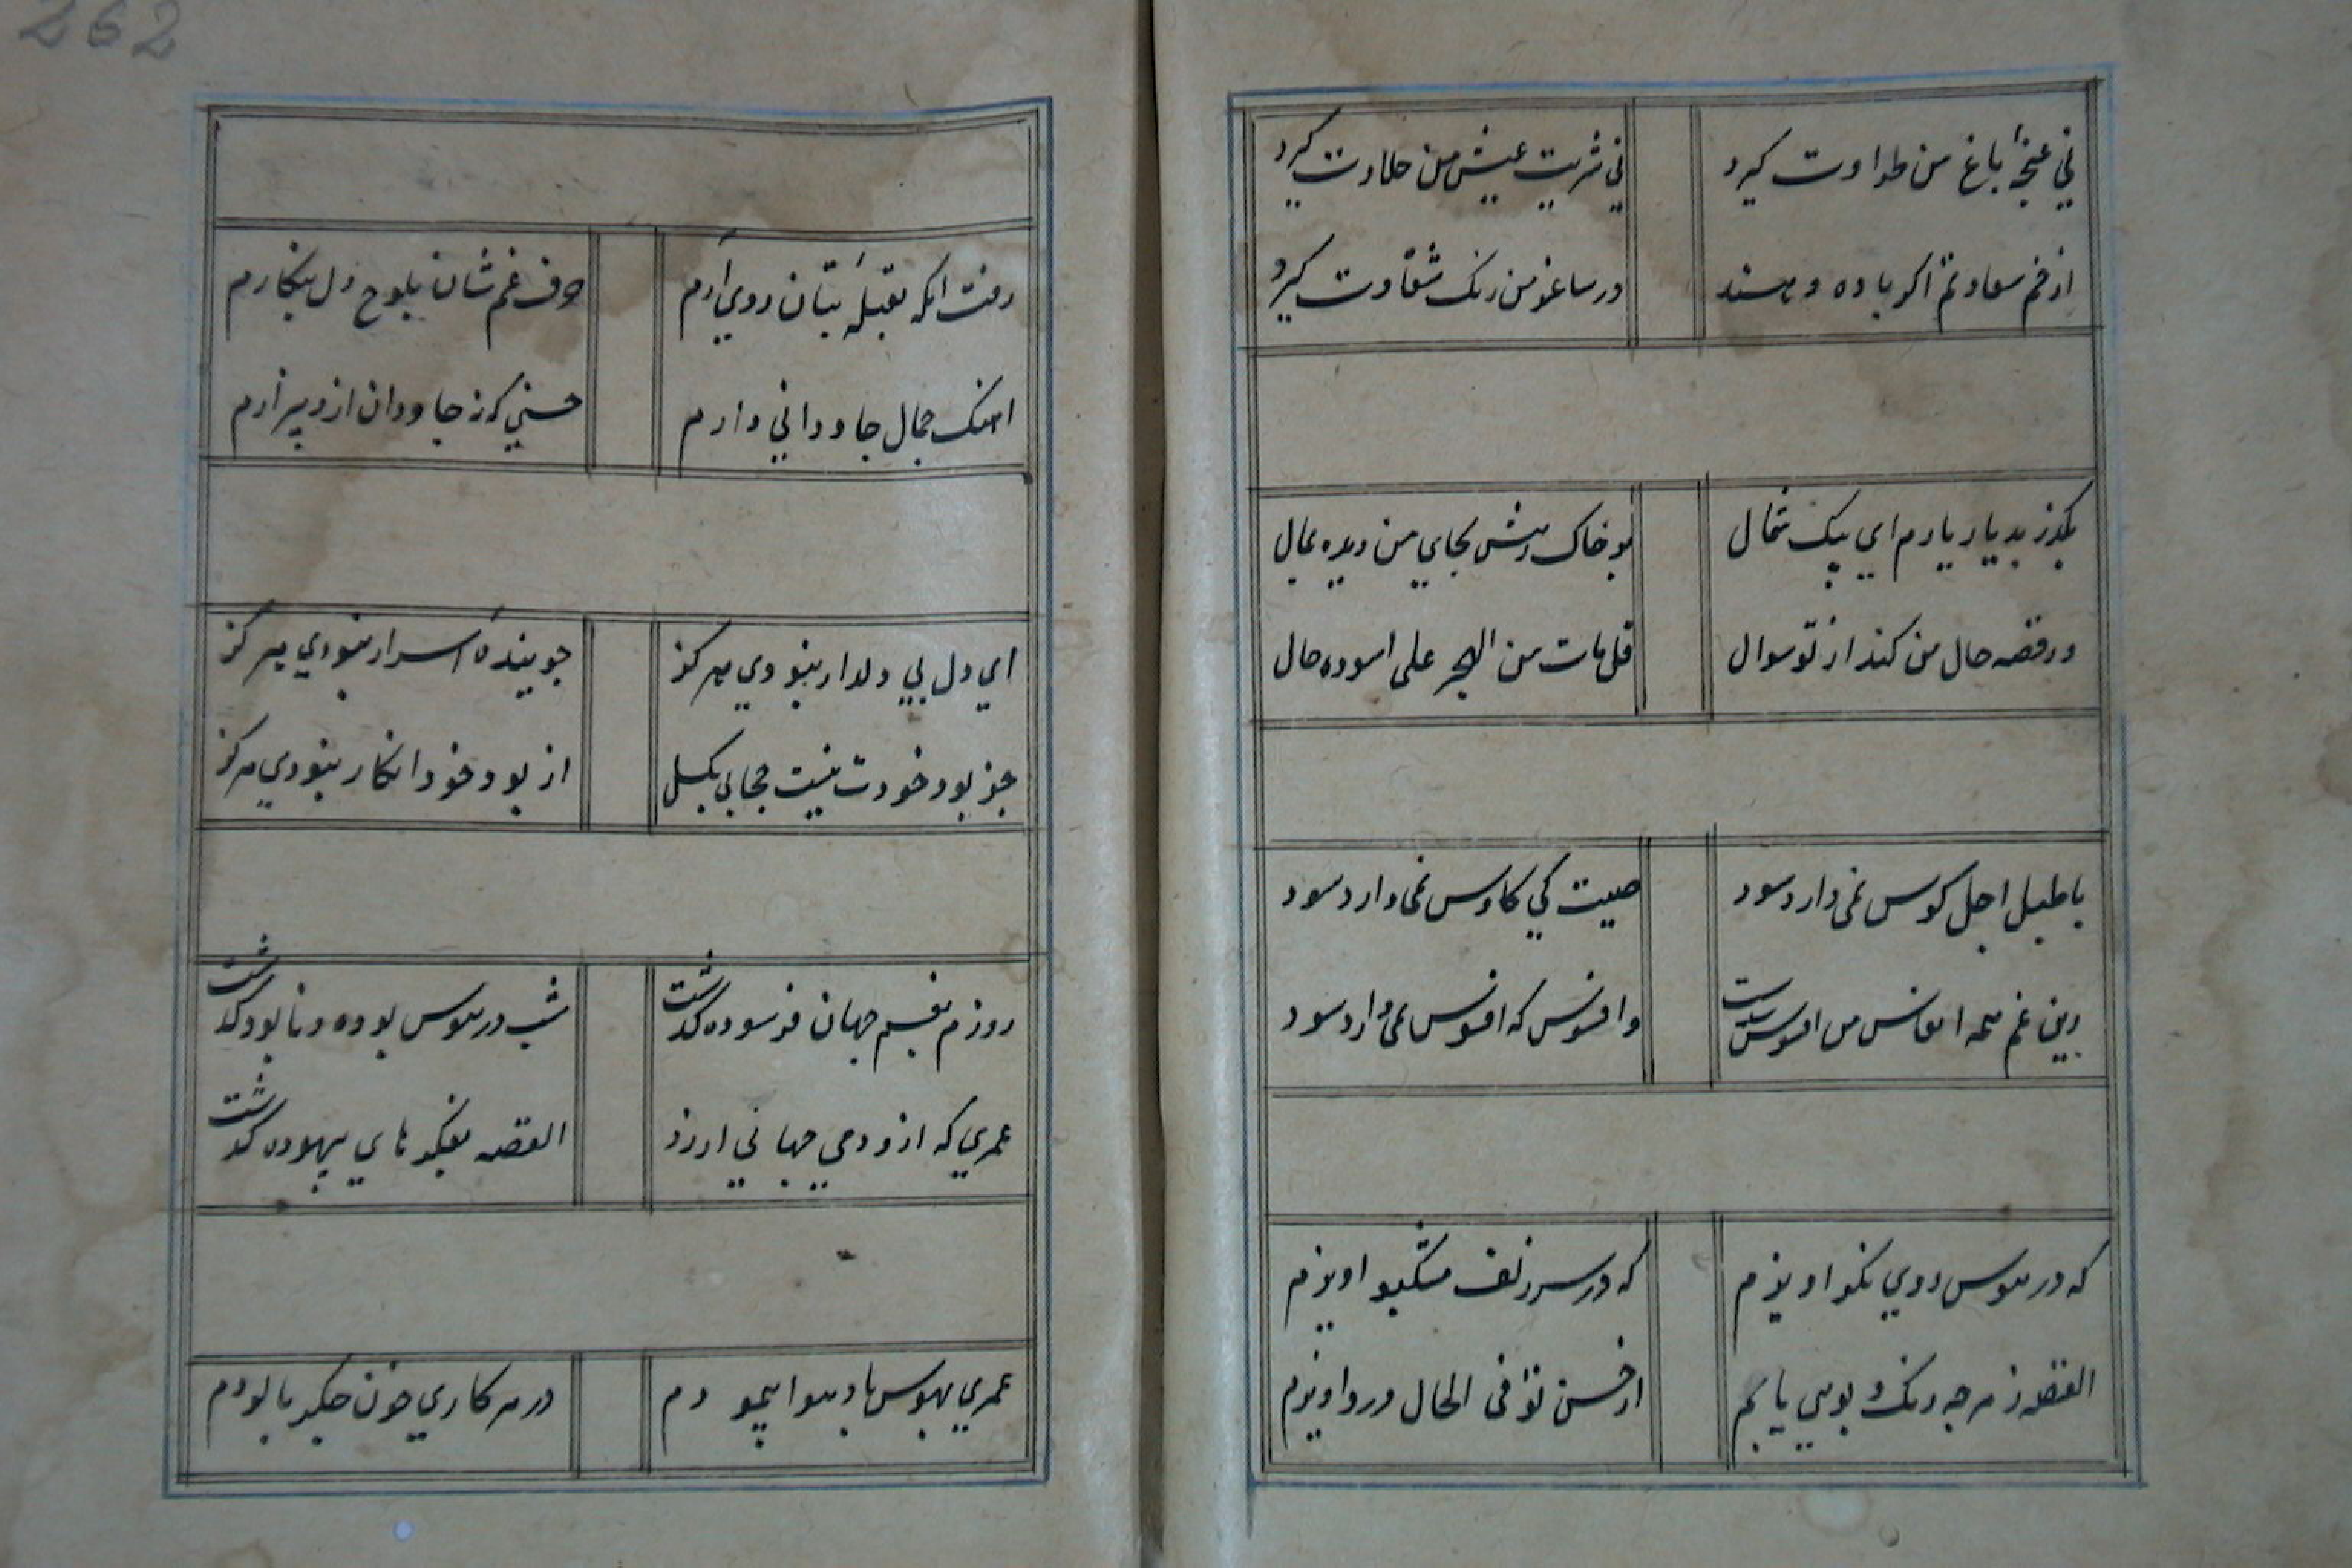 ني غنچهٔ باغ من طراوت كيرد
ني شربت عيش من حلاوت كيرد
از خم سعادتم اكر باده دهند
در ساغر من رنك شقاوت كيرد
بكذر بديار يارم اي پيك شمال
بر خاك رهش بجاي من ديده بمال
ور قصه حال من كند از تو سوال
قل مات من الهجر على اسوده حال
با طبل اجل كوس نمى دارد سود
صيت كي كاوس نمى دارد سود
زين غم همه انفاس من افسوس
وافسوس كه افسوس نمى دارد سود
كه در هوس روي نكو اويزم
كه در سر زلف مشكبو اويزم
القصه ز هرچه رنك و بويي يابم
از حسن تو في الحال درو اويزم
262
رفت انكه بقبلهٔ بتان روي ارم
حرف غم شان بلوح دل بنكارم
اهنك جمال جاوداني دارم
حسني كه نه جاودان ازو بيزارم
اي دل بي دلدار نبودي هركز
جويندهٔ اسرار نبودي هركز
جز بود خودت نيست حجابي بكسل
از بود خود انكار نبودي هركز
روزم بغم جهان فرسوده كذشت
شب در هوس بوده و نابوده كذشت
عمري كه ازو دمي جهاني ارزد
القصه بفكر هاي بيهوده كذشت
عمري بهوس باد هوا پيمودم
در هر كاري خون جكر پالودم